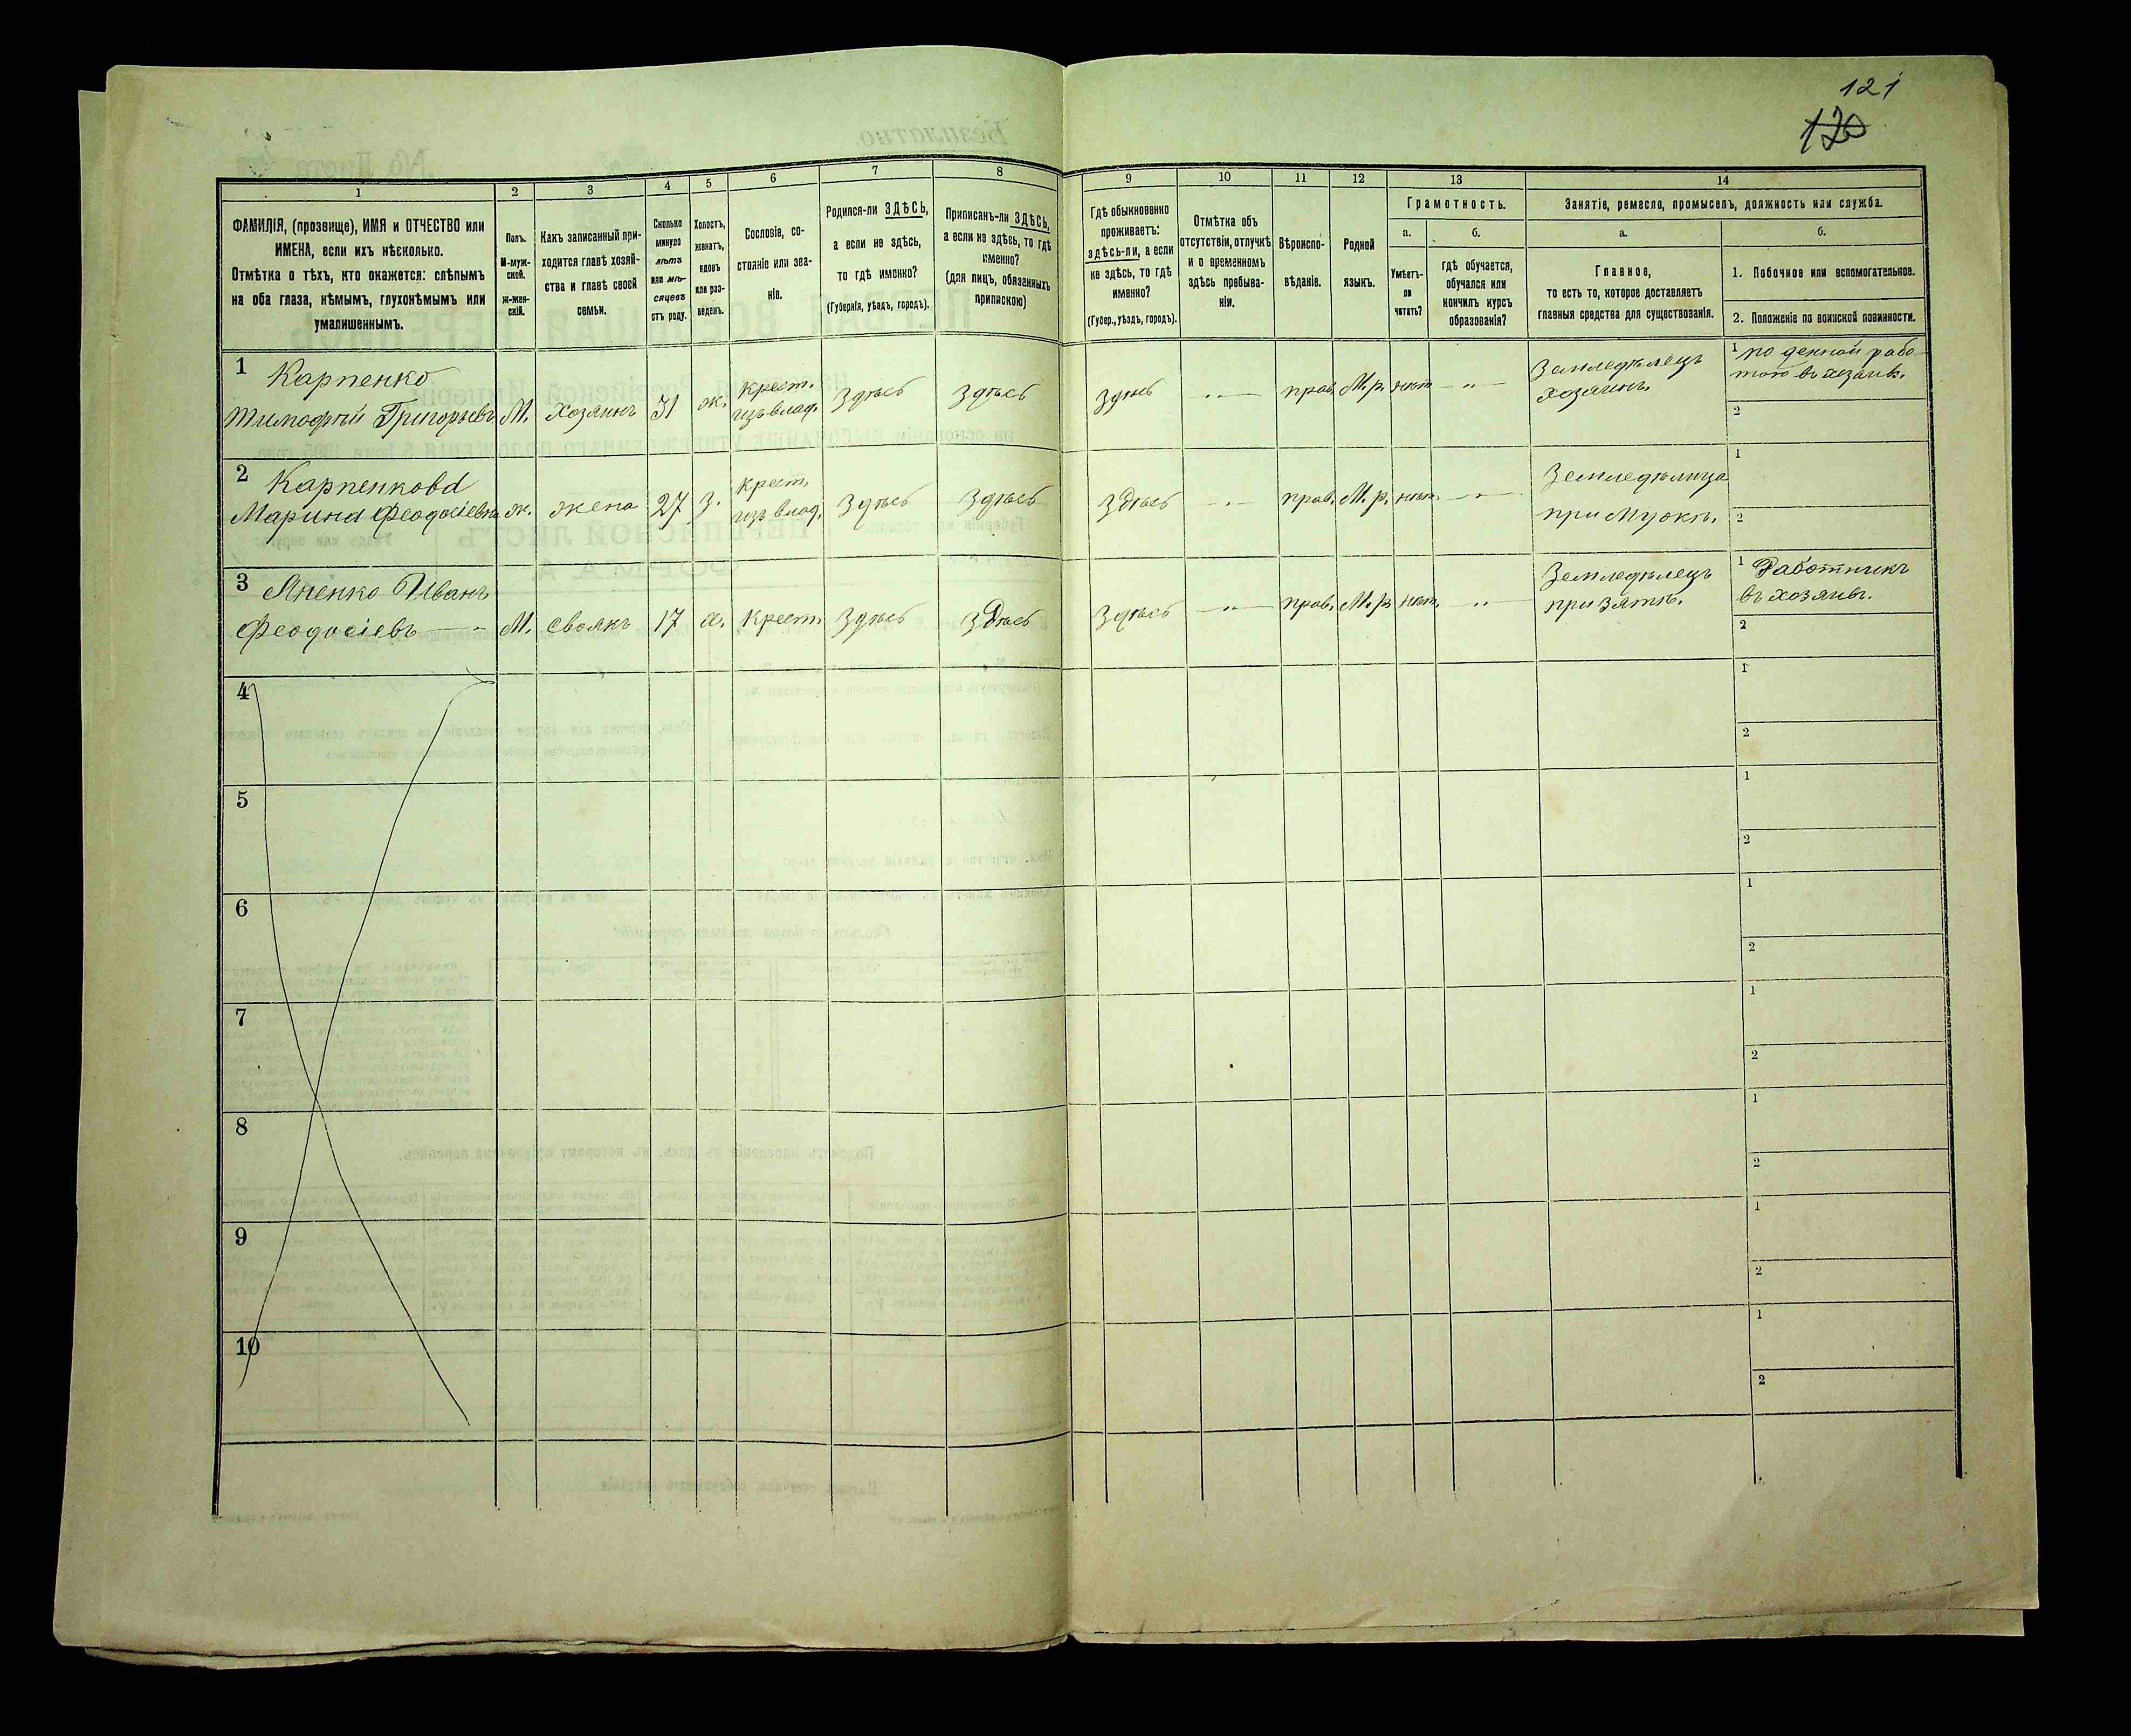 121
120
1
2
3
4
5
6
7
8
9
10
11
12
13
14
ФАМИЛІЯ, (прозвище), ИМЯ и ОТЧЕСТВО или
ИМЕНА, если ихъ нѣсколько.
Отмѣтка о тѣхъ, кто окажется: слѣпымъ
на оба глаза, нѣмымъ, глухонѣмымъ или
умалишеннымъ.
Полъ.
М-муж-
ской.
ж-жен-
скій.
Какъ записанный при-
ходится главѣ хозяй-
ства и главѣ своей
семьи.
Сколько
минуло
лѣтъ
или мѣ-
сяцевъ
отъ роду.
Холостъ,
женатъ,
вдовъ
или раз-
веденъ.
Сословіе, со-
стояніе или зва-
ніе.
Родился-ли ЗДѢСЬ,
а если не здѣсь,
то гдѣ именно?
(Губернія, уѣздъ, городъ).
Приписанъ-ли ЗДѢСЬ,
а если не здѣсь, то гдѣ
именно?
(для лицъ, обязанныхъ
припискою)
Гдѣ обыкновенно
проживаетъ:
здѣсь-ли, а если
не здѣсь, то гдѣ
именно?
(Губер., уѣздъ, городъ).
Отмѣтка объ
отсутствіи, отлучкѣ
и о временномъ
здѣсь пребыва-
ніи.
Вѣроиспо-
вѣданіе.
Родной
языкъ.
Грамотность.
а.
б.
Умѣетъ-
ли
читать?
гдѣ обучается,
обучался или
кончилъ курсъ
образованія?
Занятіе, ремесло, промыселъ, должность или служба.
а.
б.
Главное,
то есть то, которое доставляетъ
главныя средства для существованія.
1. Побочное или вспомогательное.
2. Положеніе по воинской повинности.
1 Карпенко
Тимофѣй Григорьевъ М. Хозяинъ 31 ж. крест. изъ влад. Здѣсь Здѣсь Здѣсь —„— прав. М.р. нѣтъ —„— Земледѣлецъ хозяинъ.
1 по денной рабо-
тою въ хозяив.
2
2 Карпенкова
Марина Феодосіевна ж. жена 27 З. крест. изъ влад. Здѣсь Здѣсь Здѣсь —„— прав. М.р. нѣтъ. —„— Земледѣлица при Мужѣ.
1
2
3 Яненко Иванъ
Феодосіевъ —„ М. Своякъ 17 х. Крест. Здѣсь Здѣсь Здѣсь —„— прав. М.р. нѣт. —„— Земледѣлецъ при зятѣ.
1 Работникъ
въ хозяив.
2
4
1
2
5
1
2
6
1
2
7
1
2
8
1
2
9
1
2
10
1
2